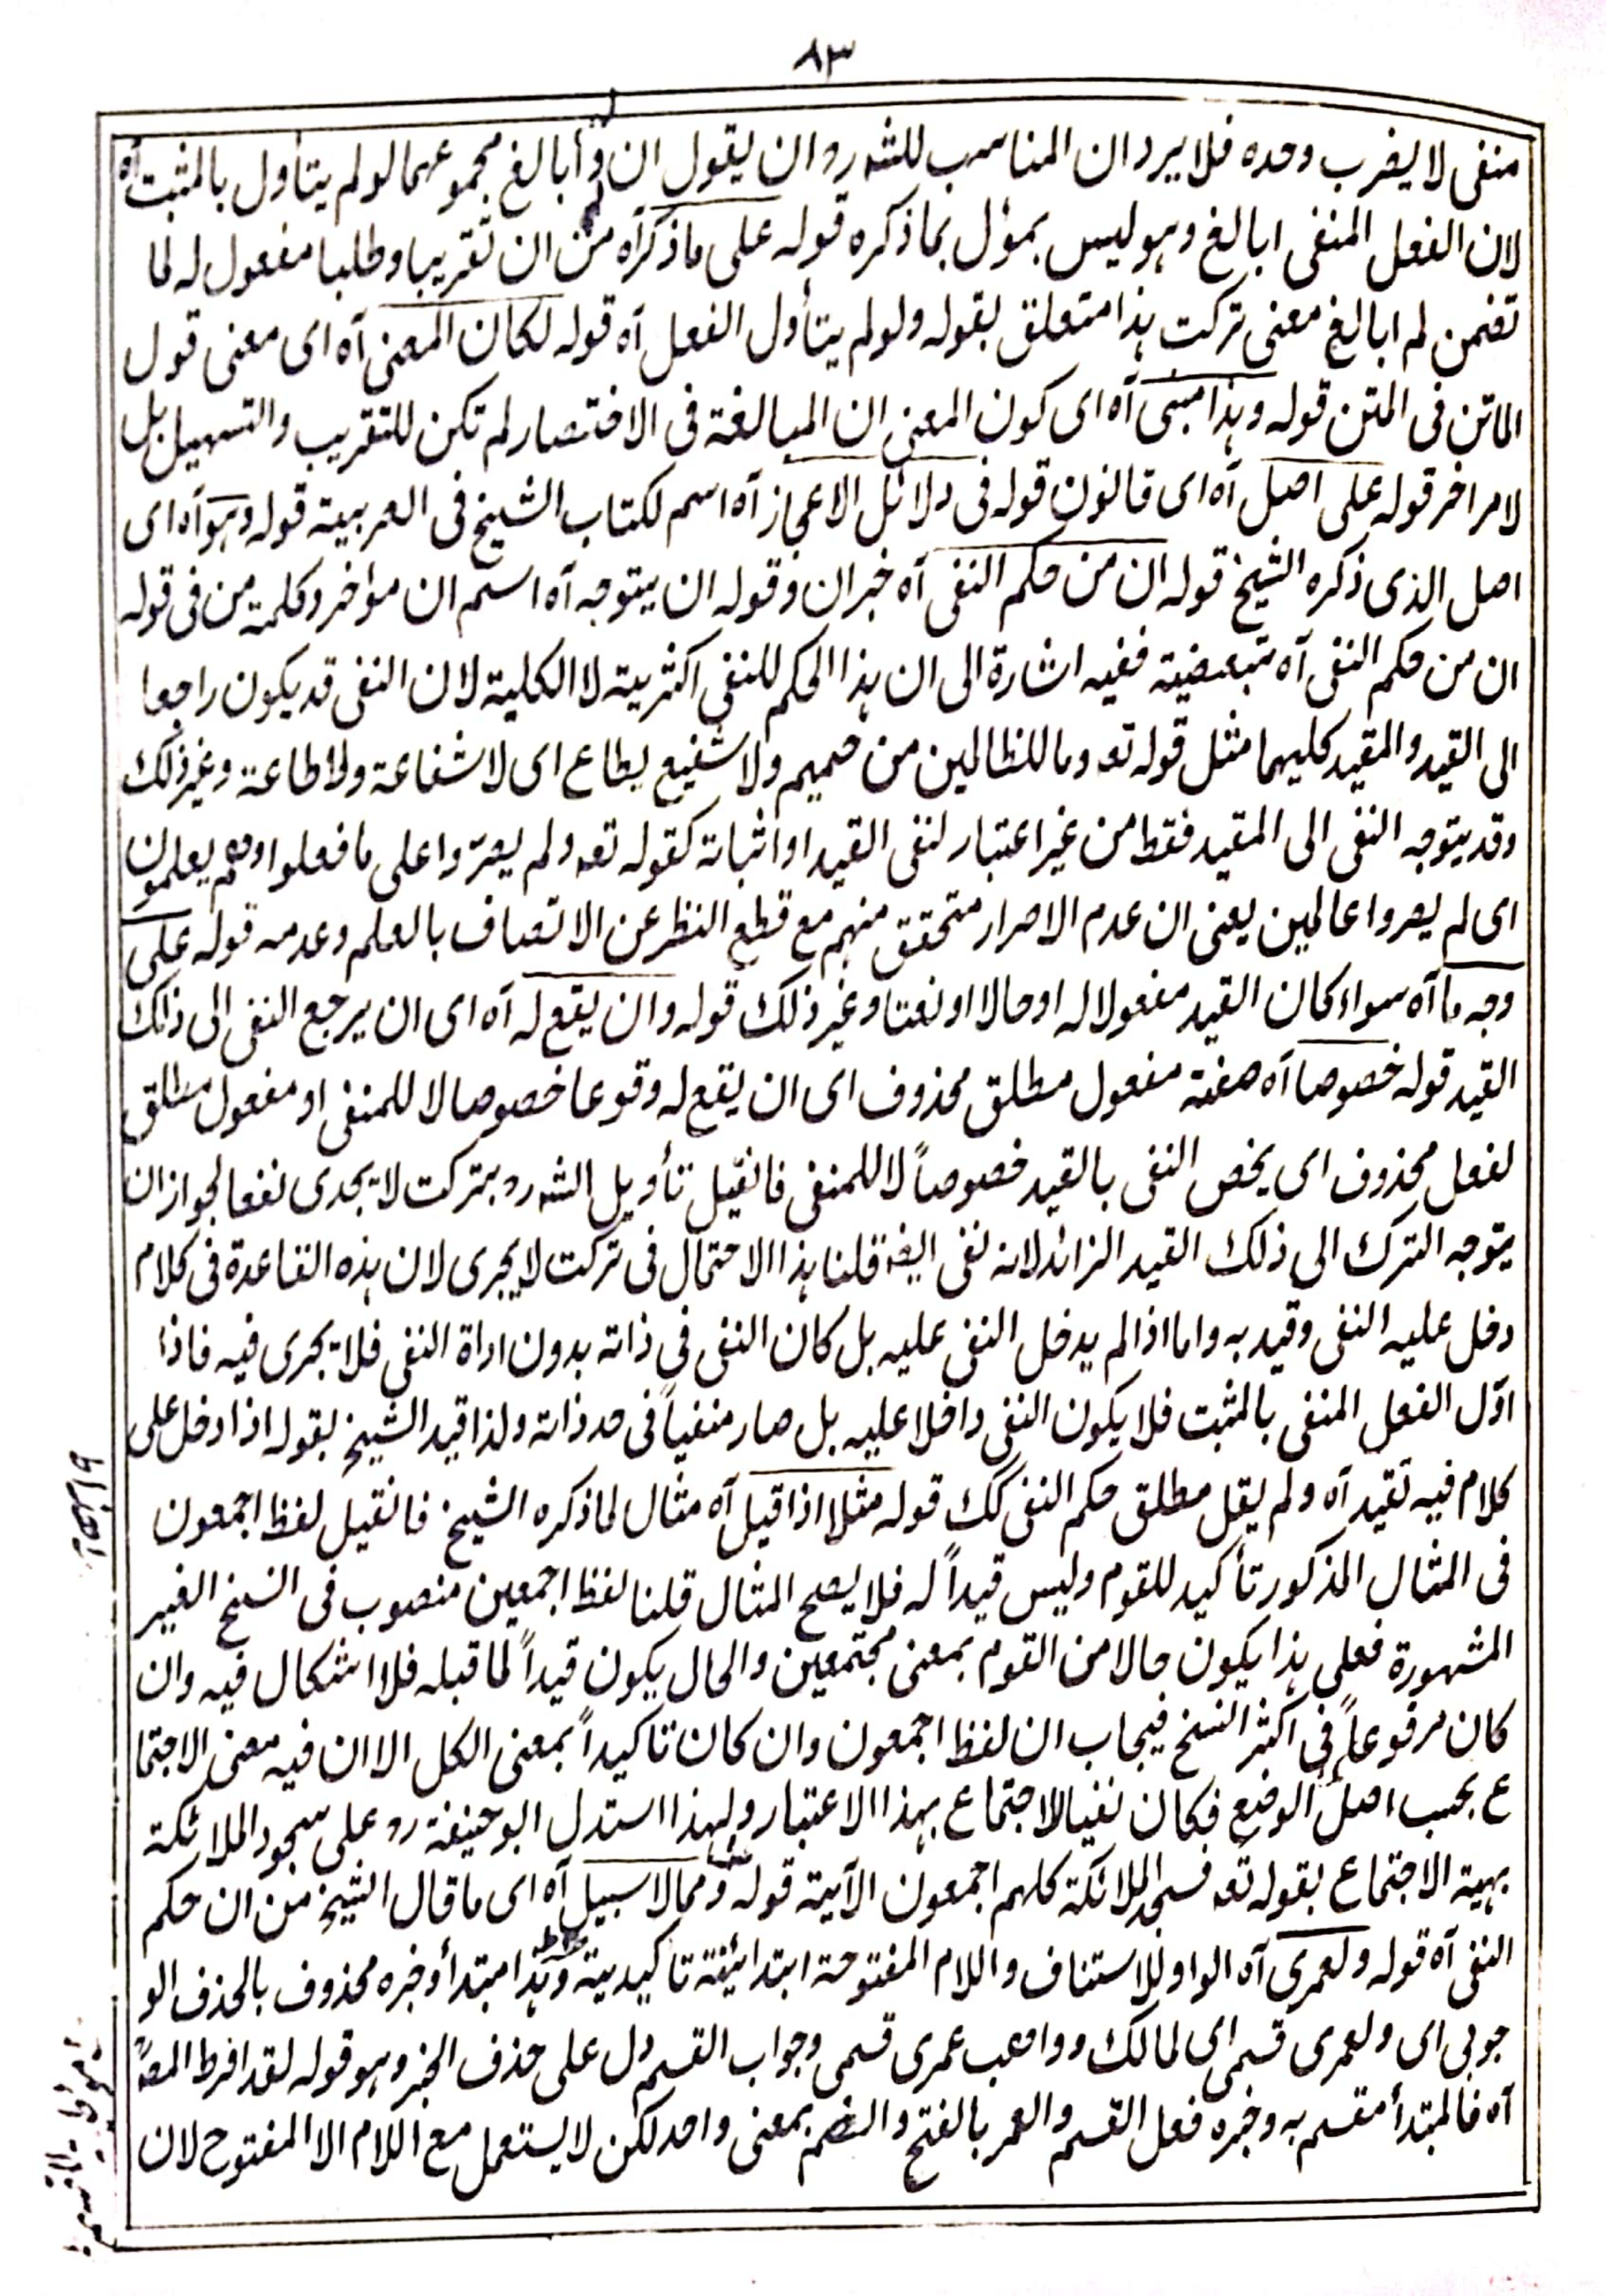 ٨٣
منفى لا يضرب وحده فلا يرد ان المناسب للشه رو ان يقول ان أبالغ مجموعهما لو لم يتأول بالمثبت آه
لان الفعل المنفى ابالغ وهو ليس بمؤل بما ذكره قوله على ما ذكرآه من ان تقريبا وطلبا مفعول له لما
تضمن لم ابالغ معنى تركت هذا متعلق بقوله ولو لم يتأول الفعل آه قوله لكان المعنى آه اى معنى قول
الماتن فى المتن قوله وهذا مبنى آه اى كون المعنى ان المبالغة فى الاختصار لم تكن للتقريب والتسهيل بل
لامر اخر قوله على اصل آه اى قانون قوله فى دلائل الاعجاز آه اسم لكتاب الشيخ فى العربية قوله وهو آه اى
اصل الذى ذكره الشيخ قوله ان من حكم النفى آه خبر ان وقوله ان يتوجه آه اسم ان مؤاخر وكلمة من فى قوله
ان من حكم النفى آه تبعيضية ففيه اشارة الى ان هذا الحكم للنفى اكثرية لا الكلية لان النفى قد يكون راجعا
الى القيد والمقيد كليهما مثل قوله تعه وما للظالمين من حميم ولا شفيع يطاع اى لا شفاعة ولا اطاعة وغير ذلك
وقد يتوجه النفى الى المقيد فقط من غير اعتبار لنفى القيد او اثباته كقوله تعه ولم يصرّوا على ما فعلوا وهم يعلمون
اى لم يصروا عالمين يعنى ان عدم الاصرار متحقق منهم مع قطع النظر عن الاتصاف بالعلم وعدمه قوله على
وجه ما آه سواء كان القيد مفعولا له او حالا او نعتا وغير ذلك قوله وان يقع له آه اى ان يرجع النفى الى ذلك
القيد قوله خصوصا آه صفة مفعول مطلق محذوف اى ان يقع له وقوعا خصوصا لا للمنفى او مفعول مطلق
لفعل محذوف اى يخص النفى بالقيد خصوصاً لا للمنفى فانقيل تأويل الشه رو بتركت لا يجدى نفعا لجواز ان
يتوجه الترك الى ذلك القيد الزائد لانه نفى ايضا قلنا هذا الاحتمال فى تركت لا يجرى لان هذه القاعدة فى كلام
دخل عليه النفى وقيد به واما اذا لم يدخل النفى عليه بل كان النفى فى ذاته بدون اداة النفى فلا يجرى فيه فاذا
اوّل الفعل المنفى بالمثبت فلا يكون النفى داخلا عليه بل صار منفياً فى حد ذاته ولذا قيد الشيخ بقوله اذا دخل على
كلام فيه تقيد آه ولم يقل مطلق حكم النفى كك قوله مثلا اذا قيل آه مثال لما ذكره الشيخ فانقيل لفظ اجمعون
فى المثال المذكور تأكيد للقوم وليس قيداً له فلا يصح المثال قلنا لفظ اجمعين منصوب فى النسخ الغير
المشهورة فعلى هذا يكون حالا من القوم بمعنى مجتمعين والحال يكون قيداً لما قبله فلا اشكال فيه وان
كان مرفوعاً فى اكثر النسخ فيجاب ان لفظ اجمعون وان كان تاكيداً بمعنى الكل الا ان فيه معنى الاجتما
ع بحسب اصل الوضع فكان نفيا للاجتماع بهذا الاعتبار ولهذا استدل ابو حنيفة رو على سجود الملائكة
بهية الاجتماع بقوله تعه فسجد الملائكة كلهم اجمعون الآية قوله ومما لا سبيل آه اى ما قال الشيخ من ان حكم
النفى آه قوله ولعمرى آه الواو للاستناف واللام المفتوحة ابتدائية تاكيدية وهذا مبتدأ وخبره محذوف بالحذف الو
جوبى اى ولعمرى قسمى اى لمالك وواهب عمرى قسمى وجواب القسم دل على حذف الخبر وهو قوله لقد افرط المصـ
آه فالمبتدأ مقسم به وخبره فعل القسم والعمر بالفتح والضم بمعنى واحد لكن لا يستعمل مع اللام الا المفتوح لان